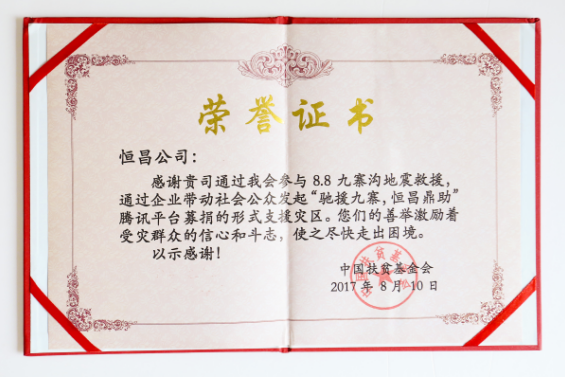 荣誉证书
恒昌公司：
感谢贵司通过我会参与 8.8 九寨沟地震救援，
通过企业带动社会公众发起“驰援九寨，恒昌鼎助”
腾讯平台募捐的形式支援灾区。您们的善举激励着
受灾群众的信心和斗志，使之尽快走出困境。
以示感谢！
中国扶贫基金会
2017 年 8 月 10 日
中国扶贫基金会